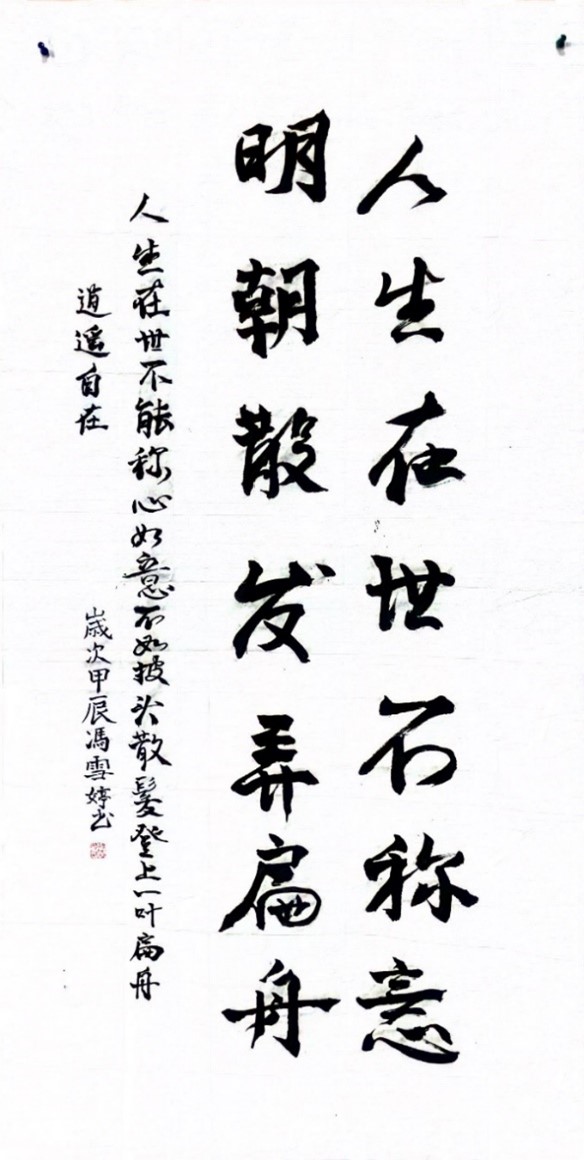 人生在世不称意
明朝散发弄扁舟
人生在世不能称心如意不如披头散髮登上一叶扁舟
逍遥自在
歲次甲辰馮雪婷书